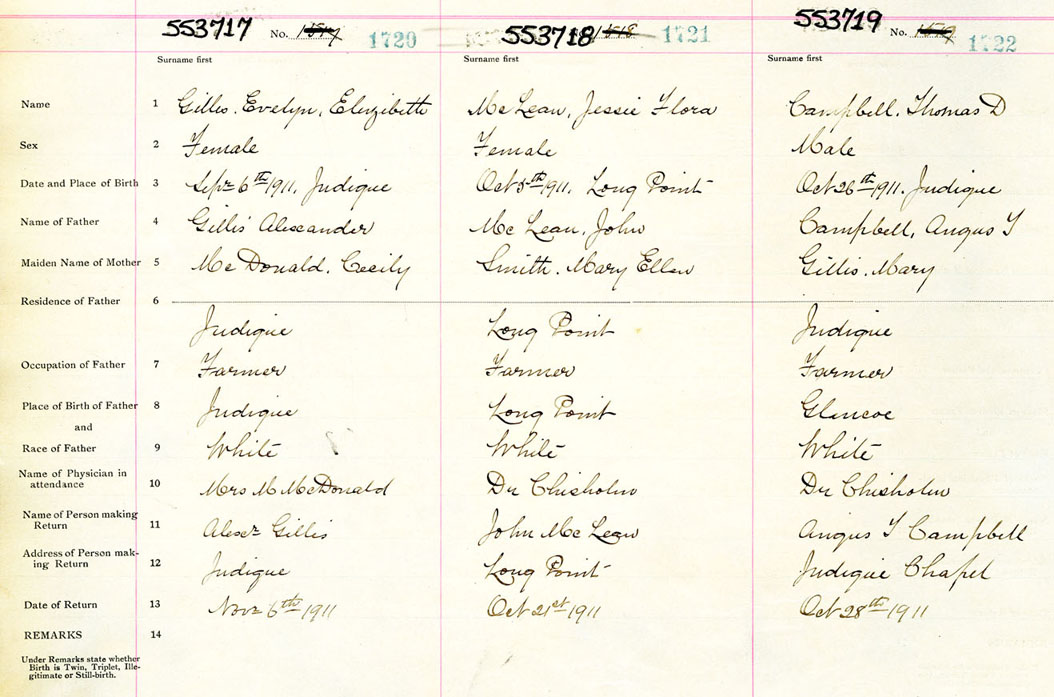 553717 No. 1720 553718 1721 553719 No. 1722
Surname first Surname first Surname first
Name 1 Gillis. Evelyn, Elizibeth Mc Lean, Jessie Flora Campbell. Thomas D
Sex 2 Female Female Male
Date and Place of Birth 3 Sept 6th 1911, Judique Oct 5th 1911, Long Point Oct 26th 1911. Judique
Name of Father 4 Gillis Alexander Mc Lean, John Campbell, Angus J
Maiden Name of Mother 5 Mc Donald, Cecily Smith. Mary Ellen Gillis. Mary
Residence of Father 6
Judique Long Point Judique
Occupation of Father 7 Farmer Farmer Farmer
Place of Birth of Father 8 Judique Long Point Glencoe
and
Race of Father 9 White White White
Name of Physician in
attendance 10 Mrs M McDonald Dr Chisholm Dr Chisholm
Name of Person making
Return 11 Alexr Gillis John Mc Lean Angus J Campbell
Address of Person mak-
ing Return 12 Judique Long Point Judique Chapel
Date of Return 13 Nov 6th 1911 Oct 21st 1911 Oct 28th 1911
REMARKS 14
Under Remarks state whether
Birth is Twin, Triplet, Ille-
gitimate or Still-birth.